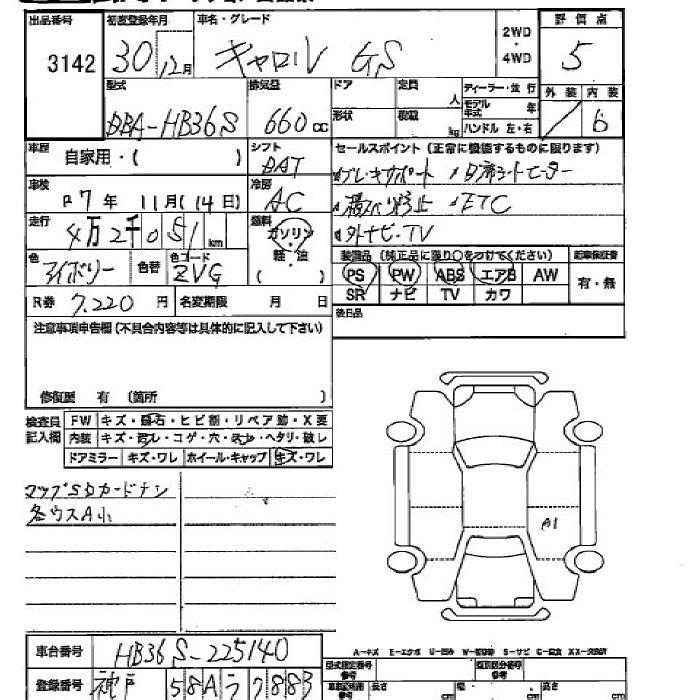 出品番号 初度登録年月 車名・グレード 2WD・4WD 評価点
3142 30 12月 キャロル GS 5
型式 排気量 ドア 定員 人 ディーラー・並行 外装 内装
DBA-HB36S 660cc 形状 積載 kg モデル年式 年 ハンドル 左・右 6
車歴 自家用・( ) シフト DAT セールスポイント(正常に機能するものに限ります)
車検 R7年 11月(14日) 冷房 AC ・ブレーキサポート ・D席シートヒーター
走行 4万2千051km 燃料 ガソリン・軽・油 ( ) ・横スベリ防止 ・ETC
・外ナビ・TV
色 アイボリー 色替 色コード ZVG 装備品(純正品に限り○をつけてください) 記録保証書
PS PW ABS エアB AW 有・無
SR ナビ TV カワ
R券 7,220円 名変期限 月 日 後日品
注意事項申告欄(不具合内容等は具体的に記入して下さい)
修復歴 有 (箇所 )
検査員記入欄 FW キズ・飛石・ヒビ割・リペア跡・X要
内装 キズ・汚レ・コゲ・穴・スレ・ヘタリ・破レ
ドアミラー キズ・ワレ ホイール・キャップ キズ・ワレ
マップSDカードナシ
各ウスA小
A1
車台番号 HB36S-225140
A-キズ E-エクボ U-凹み W-補修跡 S-サビ C-腐食
登録番号 神戸 58A ラ 7883 型式指定番号 類別区分番号
長さ cm 幅 cm 高さ cm